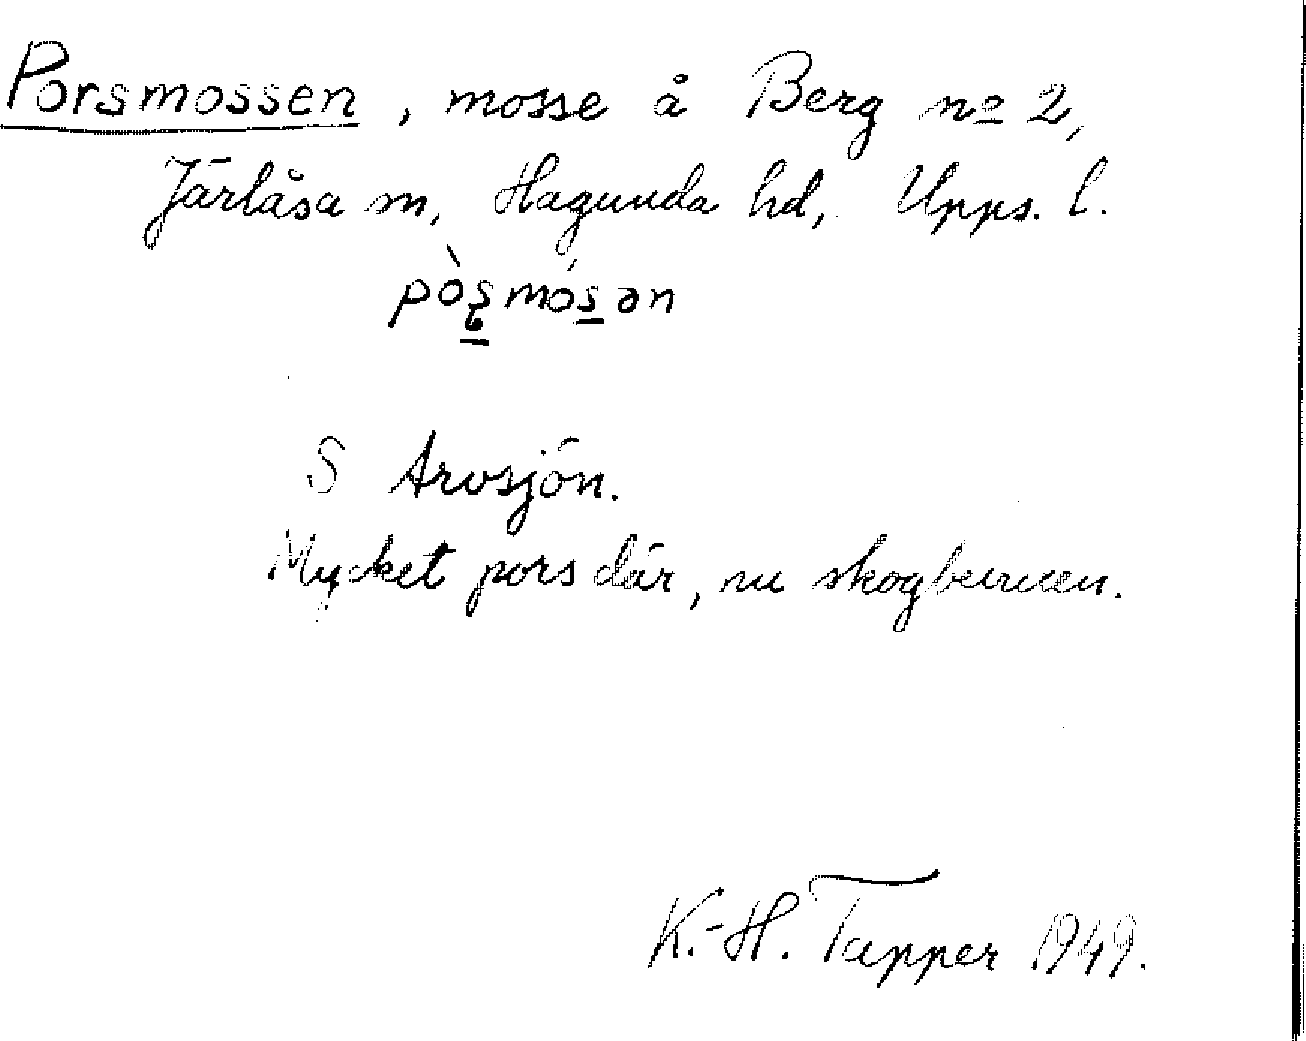 Porsmossen, mosse å Berg nº 2,
Järlåsa sn, Hagunda hd, Upps. l.
pòʂ̱mós̱ən
S Arosjön.
Mycket pors där, nu skogbeuxen.
K.-H. Tapper 1949.